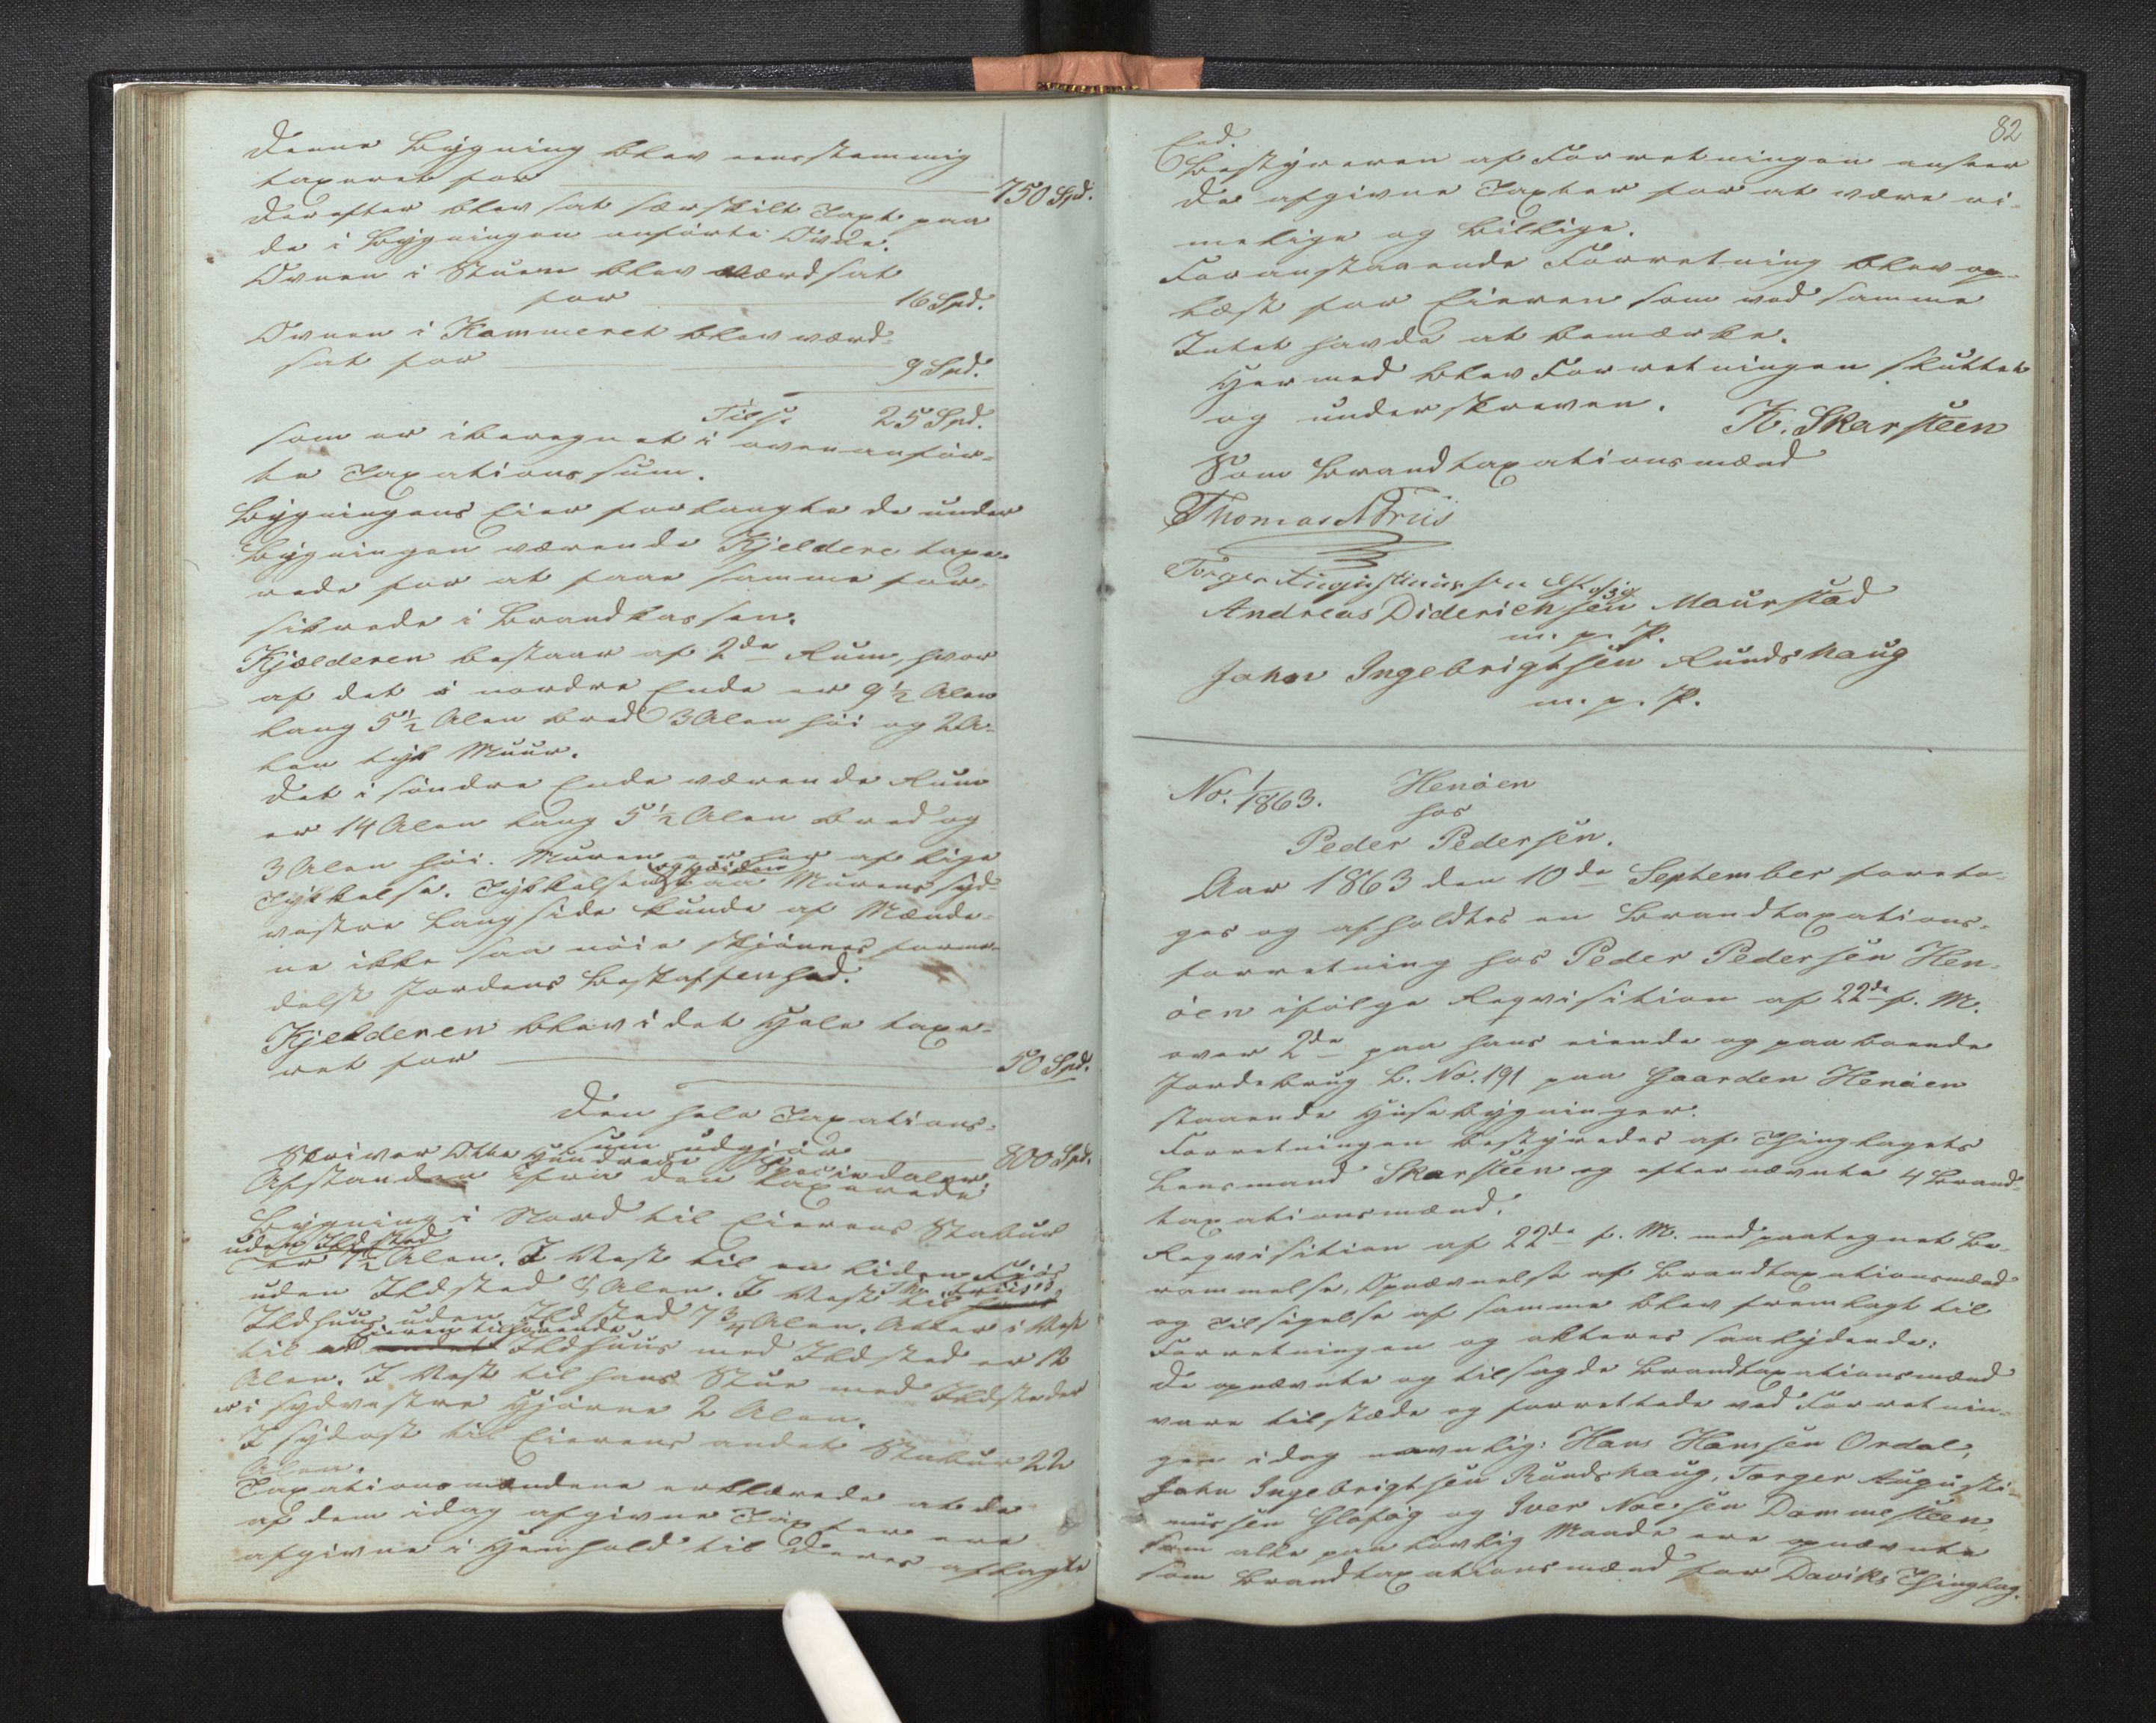 Denne Bygning blev eensstemmig
taxeret for 750 Spd.
Derefter blev sat særskilt Taxt paa
de i Bygningen anførte Ovne.
Ovnen i Stuen blev værdsat
for 16 Spd.
Ovnen i Kammeret blev værd-
sat for 9 Spd.
Tils. 25 Spd.
som er iberegnet i ovenanfør-
te Taxationssum.
Bygningens Eier forlangte de under
Bygningen værende Kjeldere taxe-
rede for at faae samme for-
sikrede i Brandkassen.
Kjælderen bestaar af 2de Rum, hvor
af det i nordre Ende er 9 1/2 Alen
lang 5 1/2 Alen bred 3 Alen høi og 2 A-
len tyk Muur.
Det i søndre Ende værende Rum
er 14 Alen lang 5 1/2 Alen bred og
3 Alen høi. Muren er her af lige
Tykkelse. Tykkelsen og Høiden paa Murens syd-
vestre Langside kunde af Mænde-
ne ikke saa nøie skjønnes forme-
delst Jordens Beskaffenhed.
Kjelderen blev i det Hele taxe-
ret for 50 Spd.
Den hele Taxations-
sum udgjør 800 Spd.
Skriver Otte Hundrede Speciedaler.
Afstanden ifra den taxerede
Bygning i Nord til Eierens Stabur
uden Ildsted
er 1 1/2 Alen. I Vest til en liden Fjøs
uden Ildsted 4 Alen. I Vest til Th. Friis's
Ildhuus uden Ildsted 7 3/4 Alen. Atter i Vest
til et Eieren tilhørende
Ildhuus med Ildsted er 12
Alen. I Vest til hans Stue med Ildsteder
er i sydvestre Hjørne 2 Alen.
I Sydost til Eierens andet Stabur 22
Alen.
Taxationsmændene erklærede at de
af dem idag afgivne Taxter ere
afgivne i Henhold til deres aflagte
82
Eed.
Bestyreren af Forretningen anseer
de afgivne Taxter for at være ri-
melige og billige.
Foranstaaende Forretning blev op-
læst for Eieren som ved samme
Intet havde at bemærke.
Hermed blev Forretningen sluttet
og underskreven. K. Skarsteen
Som Brandtaxationsmænd
Thomas A Friis
Torger Augustinussen
Andreas Diderichsen Maurstad
m. p. P.
John Ingebrigtsen Rundshaug
m. p. P.
No. 1/1863. Henøen
hos
Peder Pedersen.
Aar 1863 den 10de September foreto-
ges og afholdtes en Brandtaxations-
forretning hos Peder Pedersen Hen-
øen ifølge Reqvisition af 22de f. M.
over 2de paa hans eiende og paaboende
Jordebrug L. No. 191 paa Gaarden Henøen
staaende Husebygninger.
Forretningen bestyredes af Thinglagets
Lensmand Skarsteen og efternævnte 4 Brand-
taxationsmænd.
Reqvisition af 22de f. M. med paategnet Be-
rammelse, Opnævnelse af Brandtaxationsmænd
og Tilsigelse af samme blev fremlagt til
Forretningen og akteres saalydende:
De opnævnte og tilsagde Brandtaxationsmænd
vare tilstæde og forrettede ved Forretnin-
gen idag navnlig: Hans Hansen Ordal,
John Ingebrigtsen Rundshaug, Torger Augusti-
nussen Hafsøg og Iver Noesen Dommesteen,
som alle paa lovlig Maade ere opnævnte
som Brandtaxationsmænd for Daviks Thinglag.